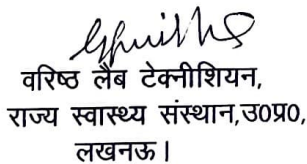 वरिष्ठ लैब टेक्नीशियन,
राज्य स्वास्थ्य संस्थान,उ०प्र०,
लखनऊ।